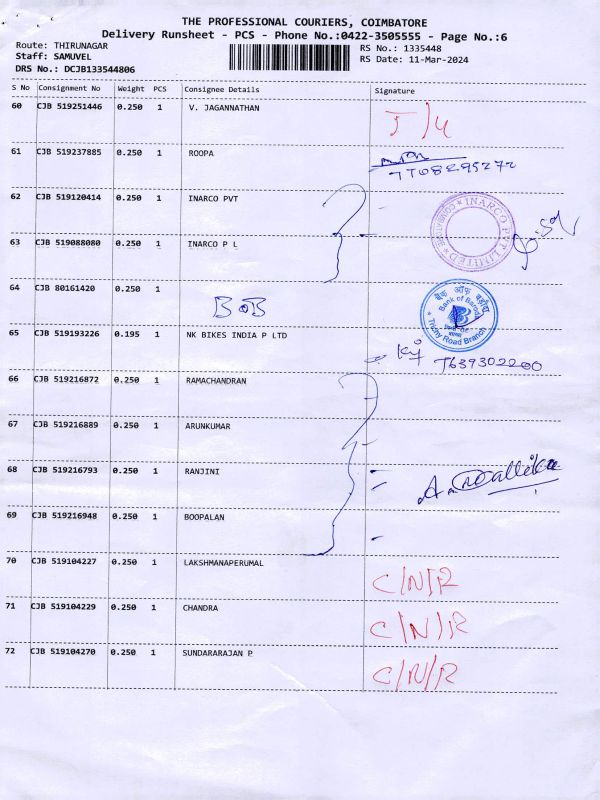 THE PROFESSIONAL COURIERS, COIMBATORE
Delivery Runsheet - PCS - Phone No.:0422-3505555 - Page No.:6
Route: THIRUNAGAR
Staff: SAMUVEL
DRS No.: DCJB133544806
RS No.: 1335448
RS Date: 11-Mar-2024
S No Consignment No Weight PCS Consignee Details Signature
60 CJB 519251446 0.250 1 V. JAGANNATHAN
61 CJB 519237885 0.250 1 ROOPA
7708295272
62 CJB 519120414 0.250 1 INARCO PVT
INARCO PVT LIMITED * COIMBATORE *
63 CJB 519088080 0.250 1 INARCO P L
64 CJB 80161420 0.250 1
BOB
बैंक ऑफ़ बड़ौदा
Bank of Baroda
Trichy Road Branch
65 CJB 519193226 0.195 1 NK BIKES INDIA P LTD
7639302200
66 CJB 519216872 0.250 1 RAMACHANDRAN
67 CJB 519216889 0.250 1 ARUNKUMAR
68 CJB 519216793 0.250 1 RANJINI
A. Mallika
69 CJB 519216948 0.250 1 BOOPALAN
70 CJB 519104227 0.250 1 LAKSHMANAPERUMAL
C/N/R
71 CJB 519104229 0.250 1 CHANDRA
C/N/R
72 CJB 519104270 0.250 1 SUNDARARAJAN P
C/N/R